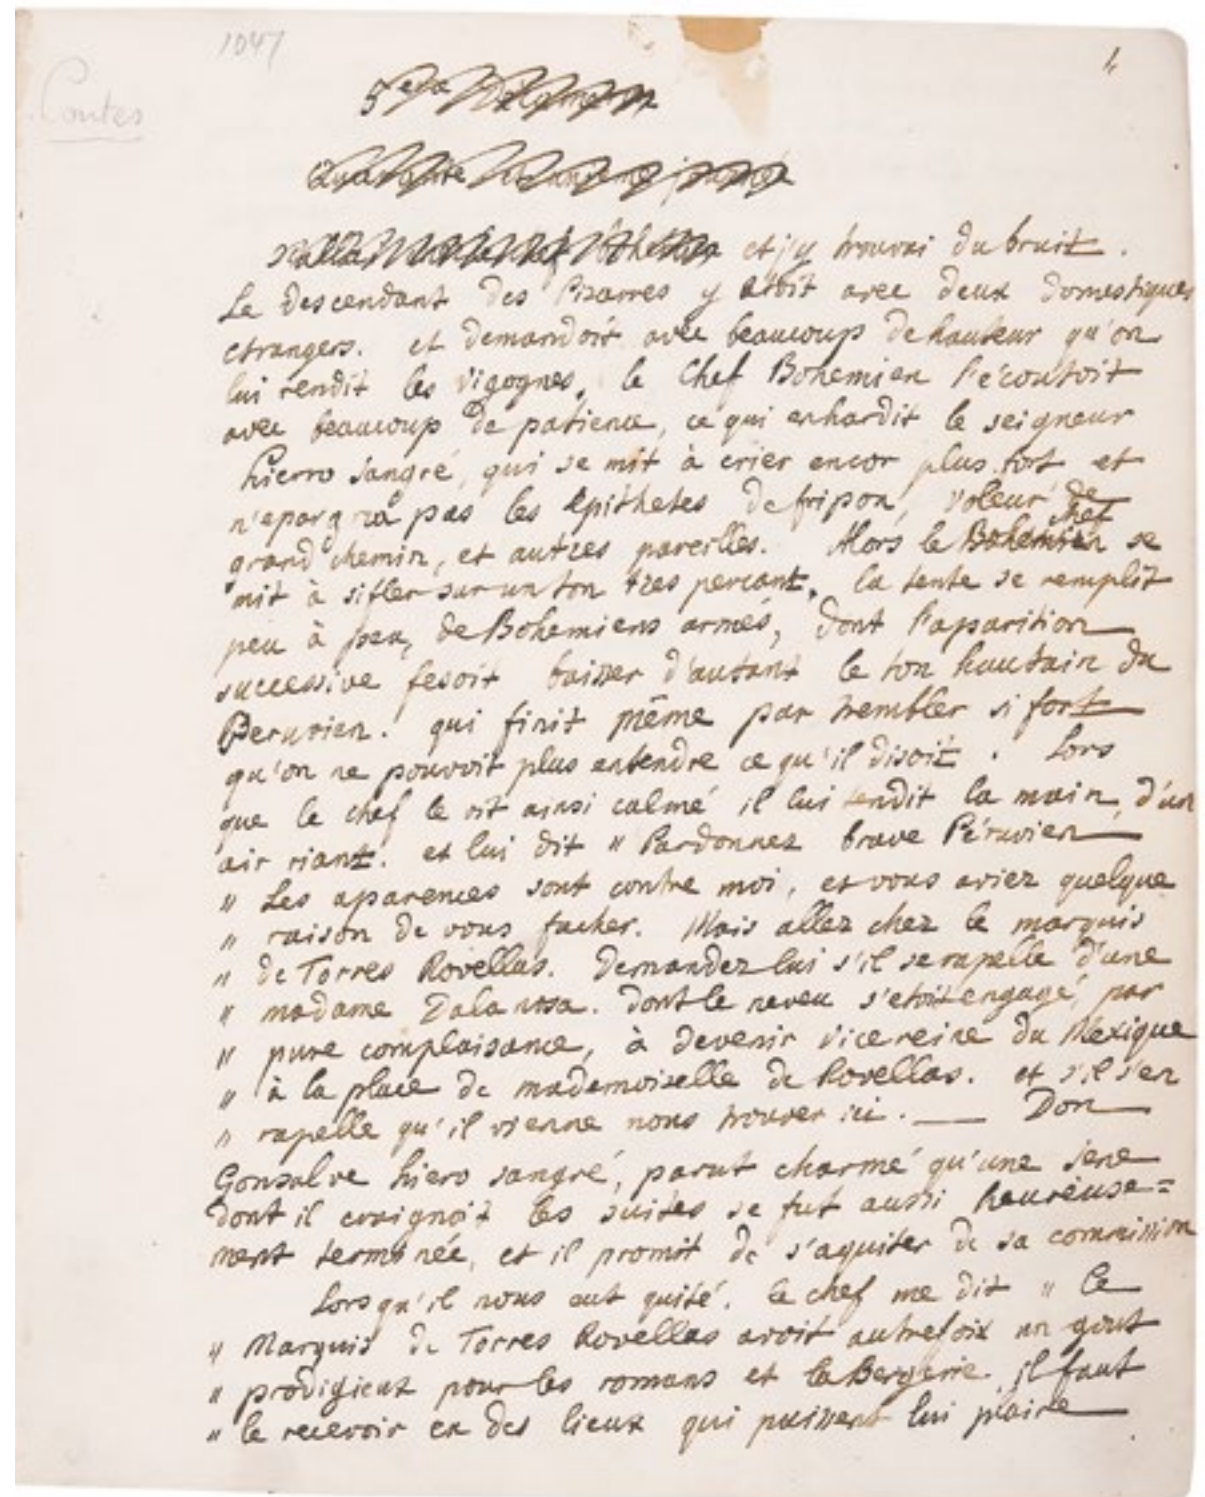 1047
4
Contes
et j'y trouvai du bruit.
Le descendant des Pizarres y etoit avec deux domestiques
etrangers. et demandoit avec beaucoup de hauteur qu'on
lui rendit les vigognes, le Chef Bohemien l'écoutoit
avec beaucoup de patience, ce qui enhardit le seigneur
hierro sangré, qui se mit à crier encor plus fort et
n'epargna pas les epithetes de fripon, voleur de
grand chemin, et autres pareilles. Alors le chef se
mit à sifler sur un ton tres percant, la tente se remplit
peu à peu, de Bohemiens armés, dont l'aparition
successive fesoit baisser d'autant le ton hautain du
Peruvien. qui finit même par trembler si fort
qu'on ne pouvoit plus entendre ce qu'il disoit. Lors
que le chef le vit ainsi calmé il lui tendit la main, d'un
air riant. et lui dit " Pardonnez brave Péruvien
" Les aparences sont contre moi, et vous aviez quelque
" raison de vous facher. Mais allez chez le marquis
" de Torres Rovellas. Demandez lui s'il se rapelle d'une
" madame Dalanosa. dont le neveu s'etoit engagé, par
" pure complaisance, à devenir vicereine du Mexique
" à la place de mademoiselle de Rovellas. et s'il s'en
" rapelle qu'il vienne nous trouver ici. — Don
Gonsalve hiero sangré, parut charmé qu'une sene
dont il craignoit les suites se fut aussi heureuse=
ment terminée, et il promit de s'aquiter de sa commission
Lorsqu'il nous eut quité. le chef me dit " Le
" Marquis de Torres Rovellas avoit autrefoix un gout
" prodigieux pour les romans et la Bergerie. il faut
" le recevoir en des lieux qui puissent lui plaire